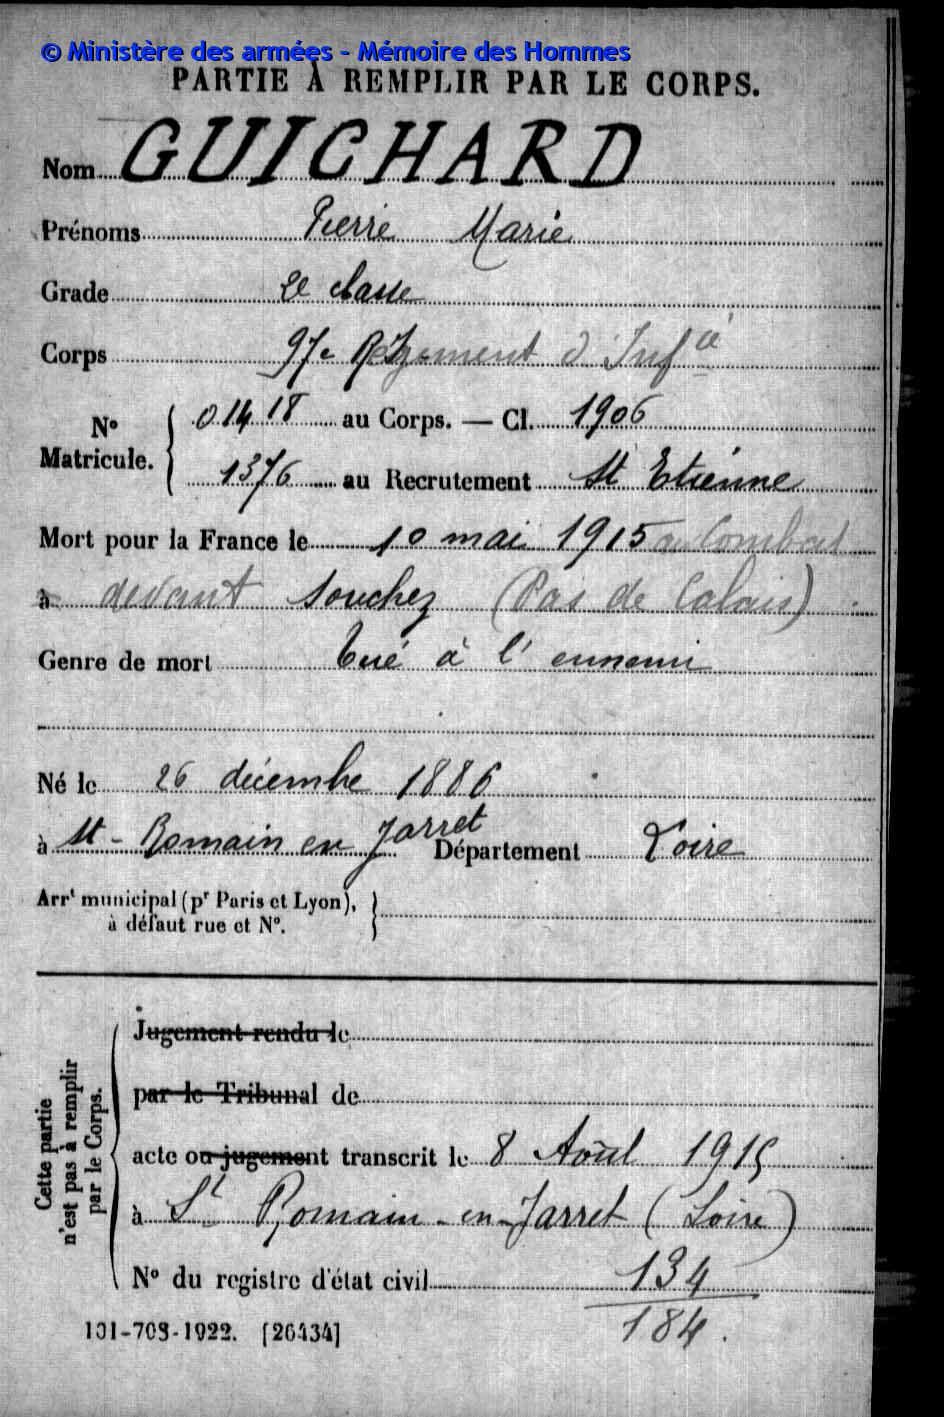 © Ministère des armées - Mémoire des Hommes
PARTIE À REMPLIR PAR LE CORPS.
Nom GUICHARD
Prénoms Pierre Marie
Grade 2e classe
Corps 97e Régiment d'Inf ie
No Matricule. 01418 au Corps. — Cl. 1906
1376 au Recrutement St Etienne
Mort pour la France le 10 mai 1915 au Combat
à devant Souchez (Pas de Calais)
Genre de mort Tué à l'ennemi
Né le 26 décembre 1886
à St-Romain en Jarret Département Loire
Arrt municipal (pr Paris et Lyon),
à défaut rue et No.
Cette partie n'est pas à remplir par le Corps.
Jugement rendu le
par le Tribunal de
acte ou jugement transcrit le 8 Août 1915
à St Romain-en-Jarret (Loire)
No du registre d'état civil 134
184.
101-708-1922. [26434]